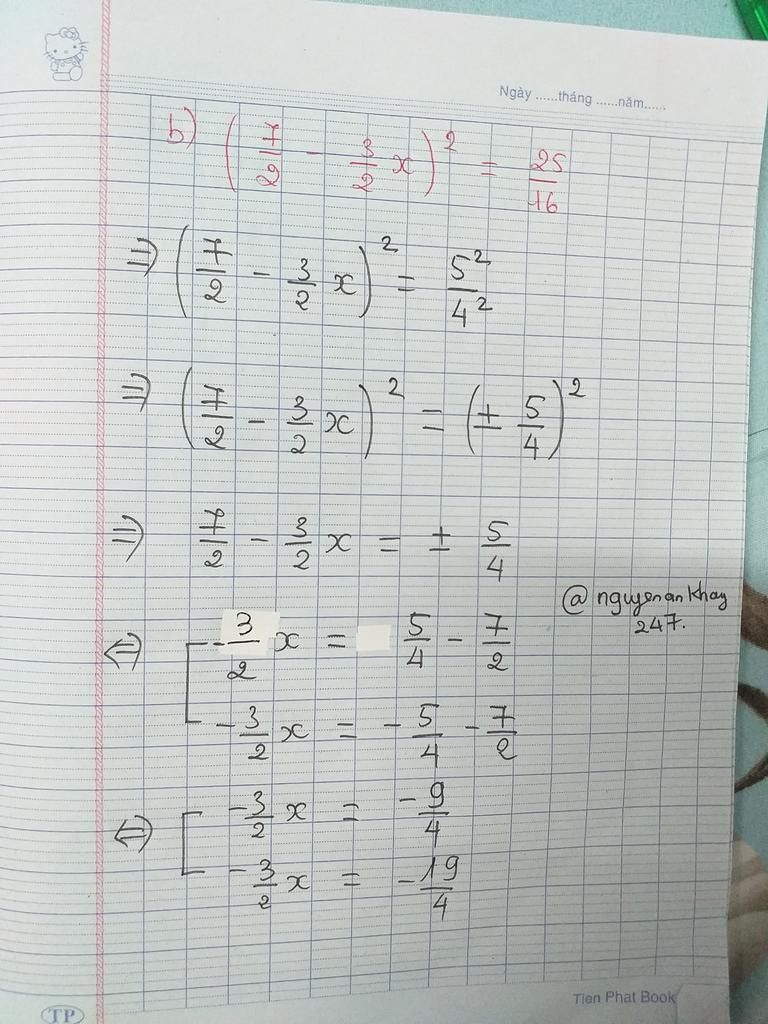 Ngày ......tháng ......năm......
b) (7/2 - 3/2 x)² = 25/16
⇒ (7/2 - 3/2 x)² = 5²/4²
⇒ (7/2 - 3/2 x)² = (± 5/4)²
⇒ 7/2 - 3/2 x = ± 5/4
@nguyenankhay
247.
⇔ [ -3/2 x = 5/4 - 7/2
-3/2 x = -5/4 - 7/2
⇔ [ -3/2 x = -9/4
-3/2 x = -19/4
TP
Tien Phat Book